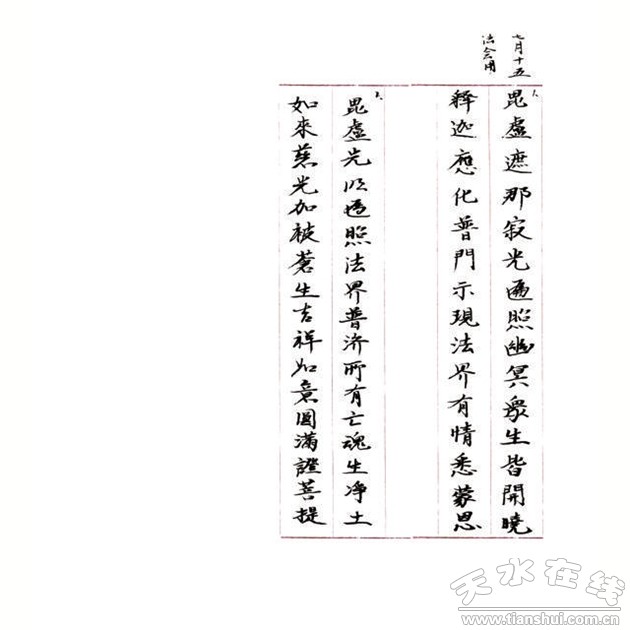 七月十五
法会用
1、毘盧遮那寂光遍照幽冥眾生皆開曉
釋迦應化普門示現法界有情悉蒙恩
2、毘盧光明遍照法界普济所有亡魂生净土
如來慈光加被蒼生吉祥如意圓滿證菩提
天水在线
www.tianshui.com.cn